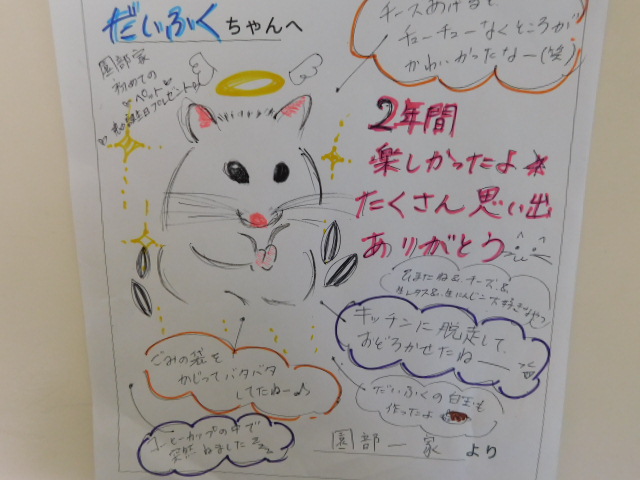 だいふくちゃんへ
園部家
初めての
ペット
誕生日プレゼント
チーズあげると、
チューチューなくところが
かわいかったなー(笑)
2年間
楽しかったよ
たくさん思い出
ありがとう
ひまたね&チーズ&
生レタス&生にんじん大好きなやつ
キッチンに脱走して、
おどろかせたね
ごみの袋を
かじってバタバタ
してたねー♪
だいふくの白玉も
作ったよ
コーヒーカップの中で
突然ねました zzz
園部一家より